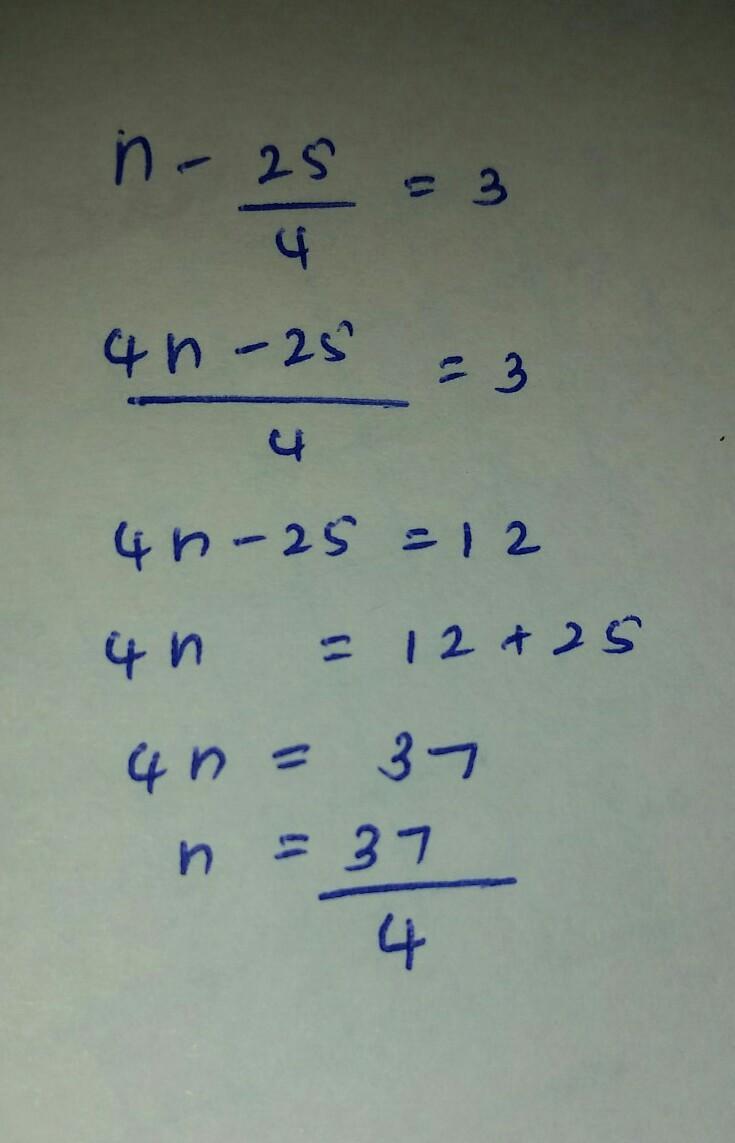 n - 25/4 = 3
4n - 25/4 = 3
4n - 25 = 12
4n = 12 + 25
4n = 37
n = 37/4